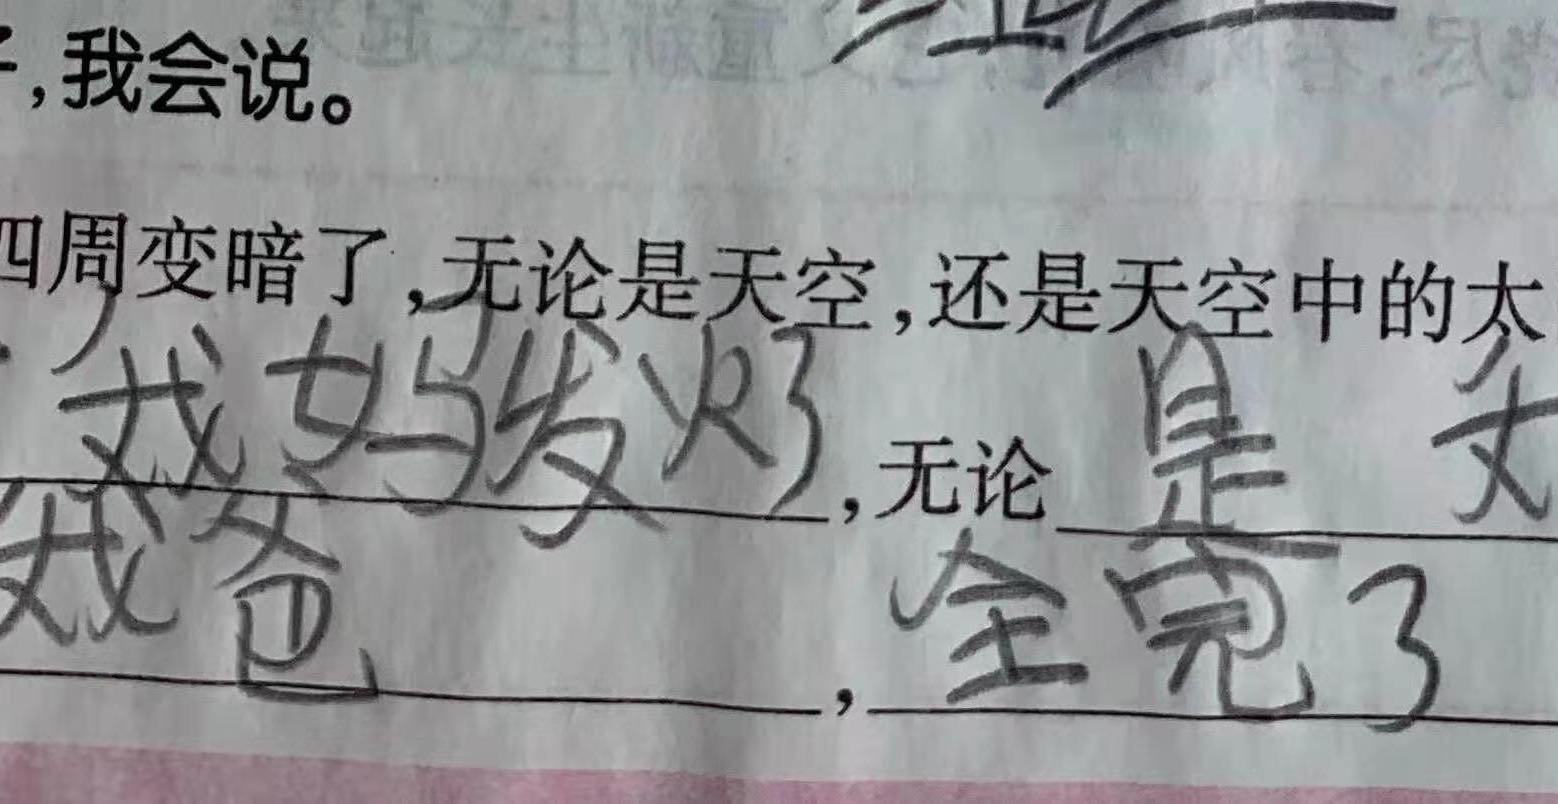 ,我会说。
四周变暗了,无论是天空,还是天空中的太
我妈发火了,无论是
我爸,全完了